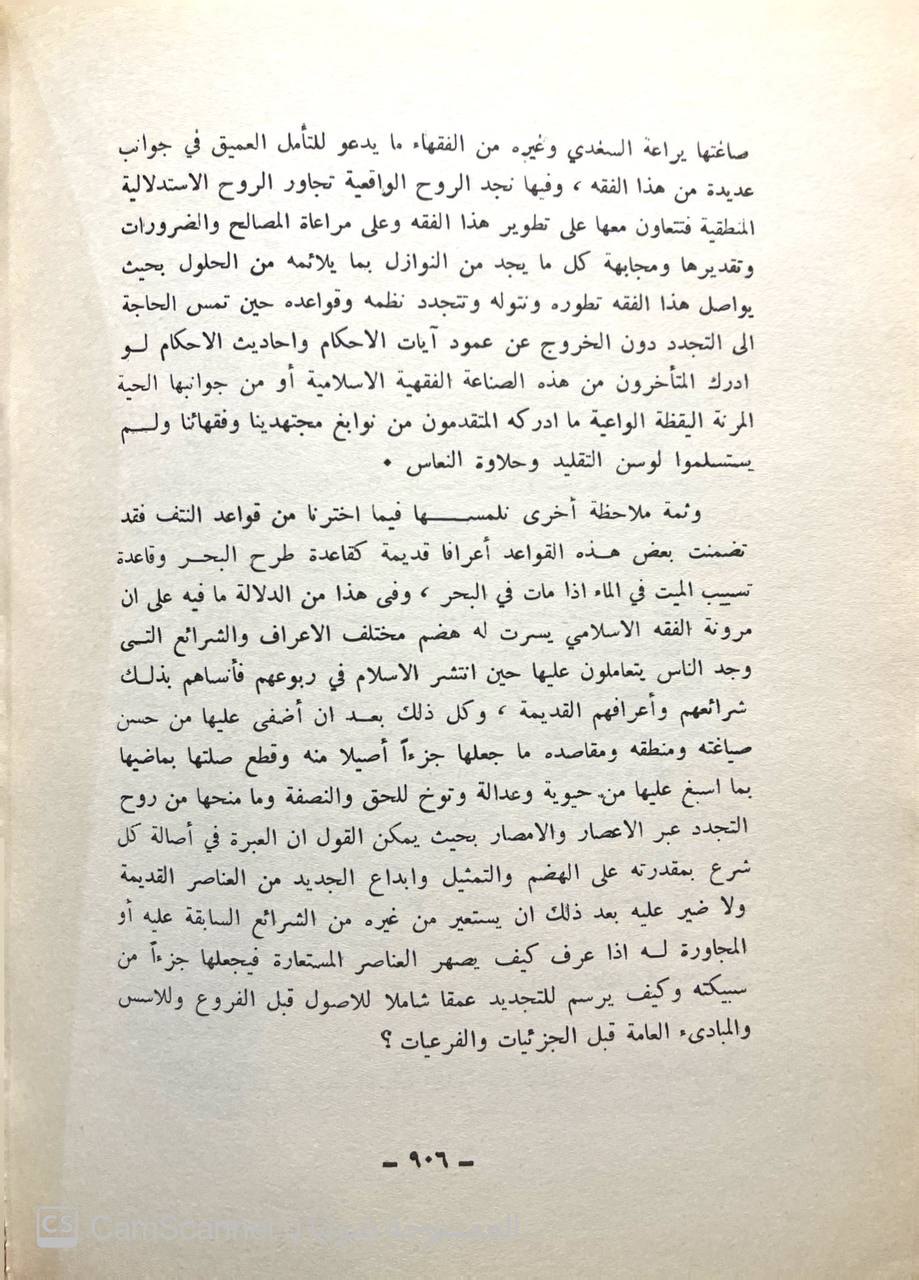 صاغتها يراعة السغدي وغيره من الفقهاء ما يدعو للتأمل العميق في جوانب
عديدة من هذا الفقه ، وفيها نجد الروح الواقعية تجاور الروح الاستدلالية
المنطقية فتتعاون معها على تطوير هذا الفقه وعلى مراعاة المصالح والضرورات
وتقديرها ومجابهة كل ما يجد من النوازل بما يلائمه من الحلول بحيث
يواصل هذا الفقه تطوره ونتوله وتتجدد نظمه وقواعده حين تمس الحاجة
الى التجدد دون الخروج عن عمود آيات الاحكام واحاديث الاحكام لو
ادرك المتأخرون من هذه الصناعة الفقهية الاسلامية أو من جوانبها الحية
المرنة اليقظة الواعية ما ادركه المتقدمون من نوابغ مجتهدينا وفقهائنا ولم
يستسلموا لوسن التقليد وحلاوة النعاس •
وثمة ملاحظة أخرى نلمسها فيما اخترنا من قواعد النتف فقد
تضمنت بعض هذه القواعد أعرافا قديمة كقاعدة طرح البحر وقاعدة
تسييب الميت في الماء اذا مات في البحر ، وفى هذا من الدلالة ما فيه على ان
مرونة الفقه الاسلامي يسرت له هضم مختلف الاعراف والشرائع التى
وجد الناس يتعاملون عليها حين انتشر الاسلام في ربوعهم فأنساهم بذلك
شرائعهم وأعرافهم القديمة ، وكل ذلك بعد ان أضفى عليها من حسن
صياغته ومنطقه ومقاصده ما جعلها جزءاً أصيلا منه وقطع صلتها بماضيها
بما اسبغ عليها من حيوية وعدالة وتوخ للحق والنصفة وما منحها من روح
التجدد عبر الاعصار والامصار بحيث يمكن القول ان العبرة في أصالة كل
شرع بمقدرته على الهضم والتمثيل وابداع الجديد من العناصر القديمة
ولا ضير عليه بعد ذلك ان يستعير من غيره من الشرائع السابقة عليه أو
المجاورة له اذا عرف كيف يصهر العناصر المستعارة فيجعلها جزءاً من
سبيكته وكيف يرسم للتجديد عمقا شاملا للاصول قبل الفروع وللاسس
والمبادىء العامة قبل الجزئيات والفرعيات ؟
– ٩٠٦ –
CS CamScanner